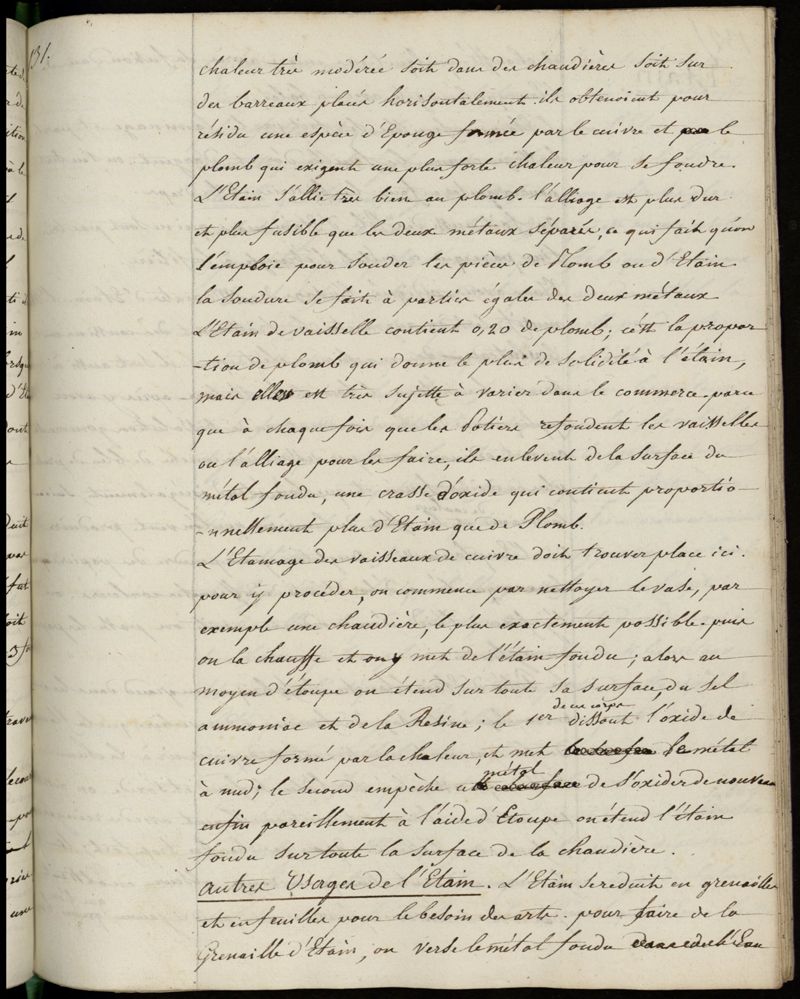 131.
chaleur très modérée soit dans des chaudières soit sur
des barreaux placés horisontalement. ils obtenoient pour
résidu une espèce d'Eponge formée par le cuivre et le
plomb qui exigent une plus forte chaleur pour se fondre.
L'Etain s'allie très bien au plomb. l'alliage est plus dur
et plus fusible que les deux métaux séparés, ce qui fait qu'on
l'emploie pour souder les pièces de Plomb ou d'Etain
la soudure se fait à parties égales des deux métaux
L'Etain de vaisselle contient 0,20 de plomb; c'est la propor
-tion de plomb qui donne le plus de solidité à l'étain,
mais elle est très sujette à varier dans le commerce. parce
que à chaque fois que les Potiers refondent les vaisselles
ou l'alliage pour les faire, ils enlevent de la surface du
métal fondu, une crasse d'oxide qui contient proportio-
-nnellement plus d'Etain que de Plomb.
L'Etamage des vaisseaux de cuivre doit trouver place ici.
pour y procéder, on commence par nettoyer le vase, par
exemple une chaudière, le plus exactement possible. puis
on la chauffe et on y met de l'étain fondu; alors au
moyen d'étoupe on étend sur toute sa surface du sel
ammoniac et de la Resine; le 1er de ces corps dissout l'oxide de
cuivre formé par la chaleur, et met le métal
à nud; le second empêche métal de s'oxider de nouveau
enfin pareillement à l'aide d'Etoupe on étend l'étain
fondu sur toute la surface de la chaudière.
Autres Usages de l'Etain. L'Etain se reduit en grenailles
et en feuilles pour le besoin des arts. pour faire de la
Grenaille d'Etain, on verse le métal fondu dans de l'Eau